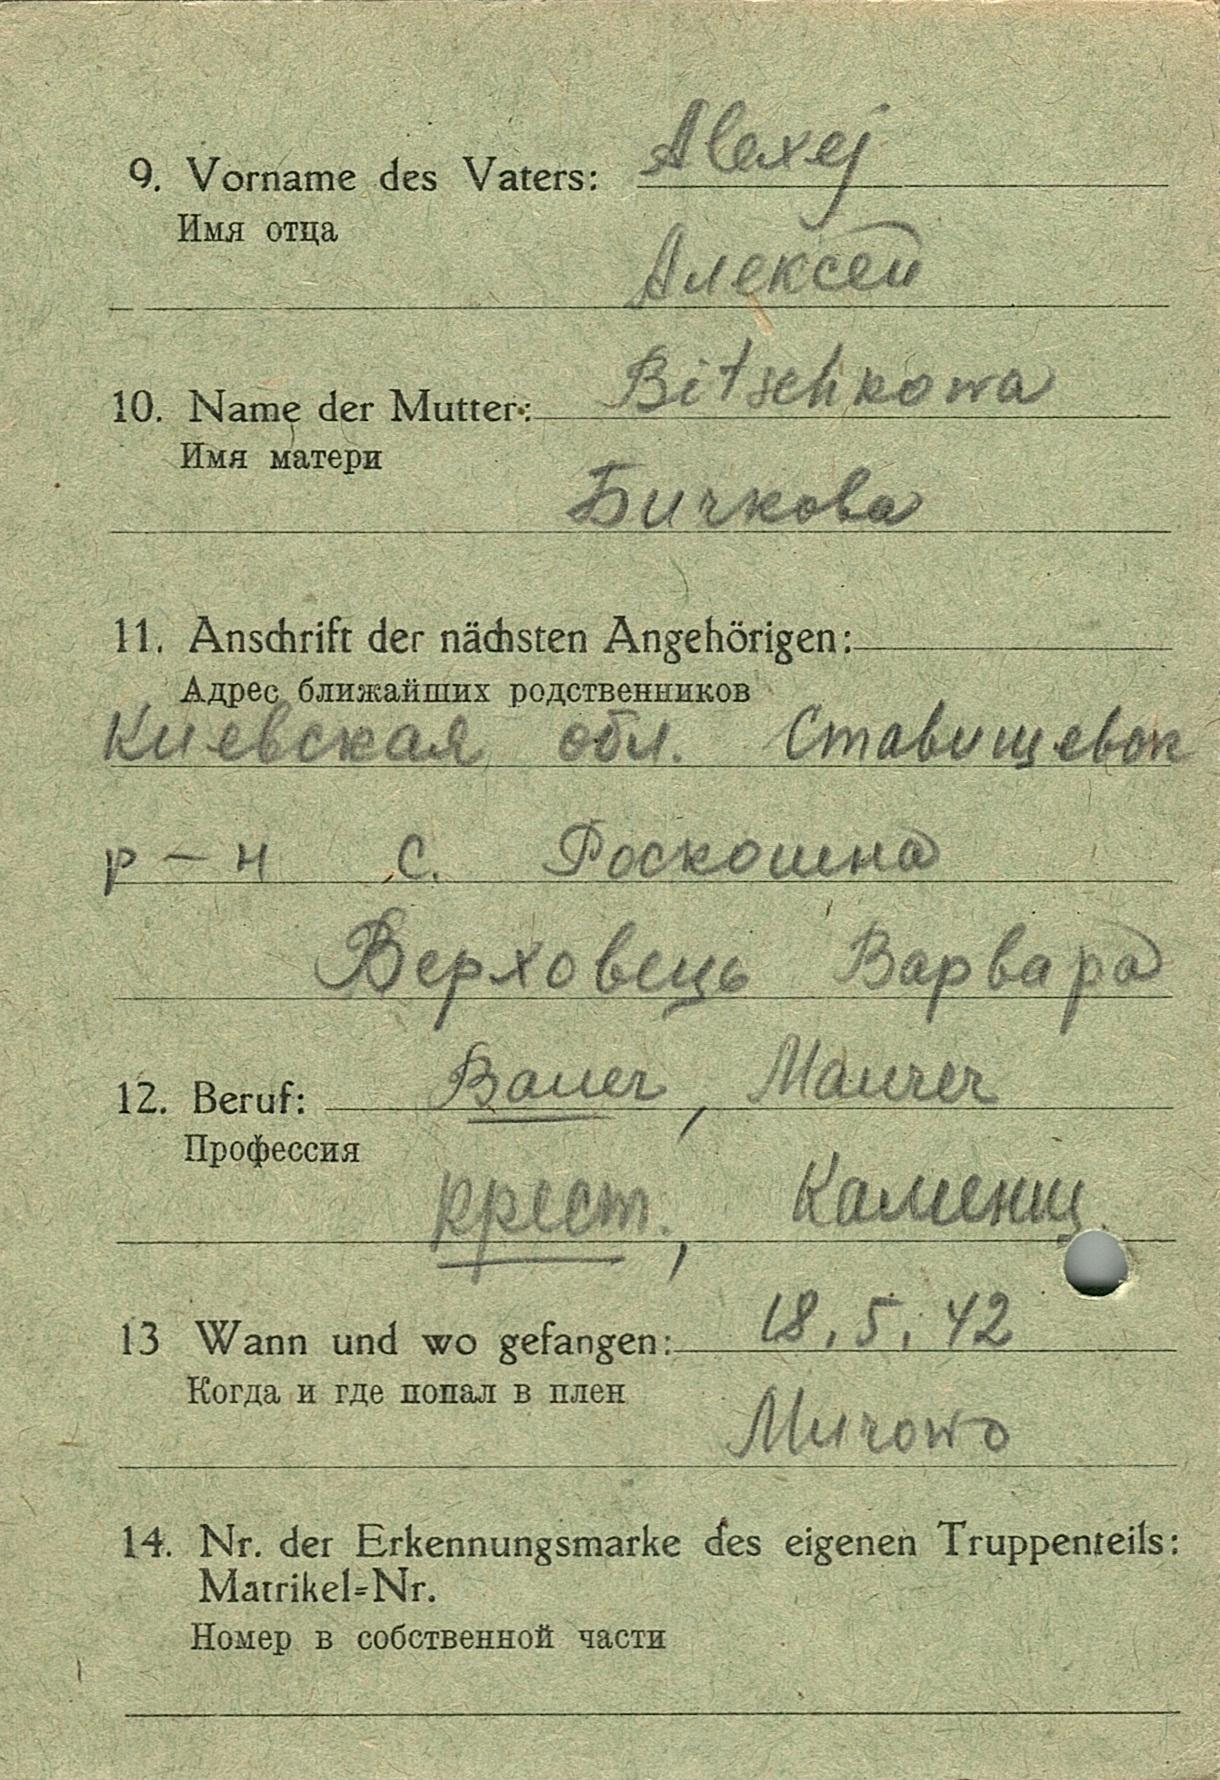 9. Vorname des Vaters: Alexej
Имя отца
Алексей
10. Name der Mutter: Bitschkowa
Имя матери
Бичкова
11. Anschrift der nächsten Angehörigen:
Адрес ближайших родственников
Киевская обл. Ставищевск
р-н с. Роскошна
Верховець Варвара
12. Beruf: Bauer, Maurer
Профессия
крест., Каменщ.
13 Wann und wo gefangen: 18.5.42
Когда и где попал в плен
14. Nr. der Erkennungsmarke des eigenen Truppenteils:
Matrikel=Nr.
Номер в собственной части